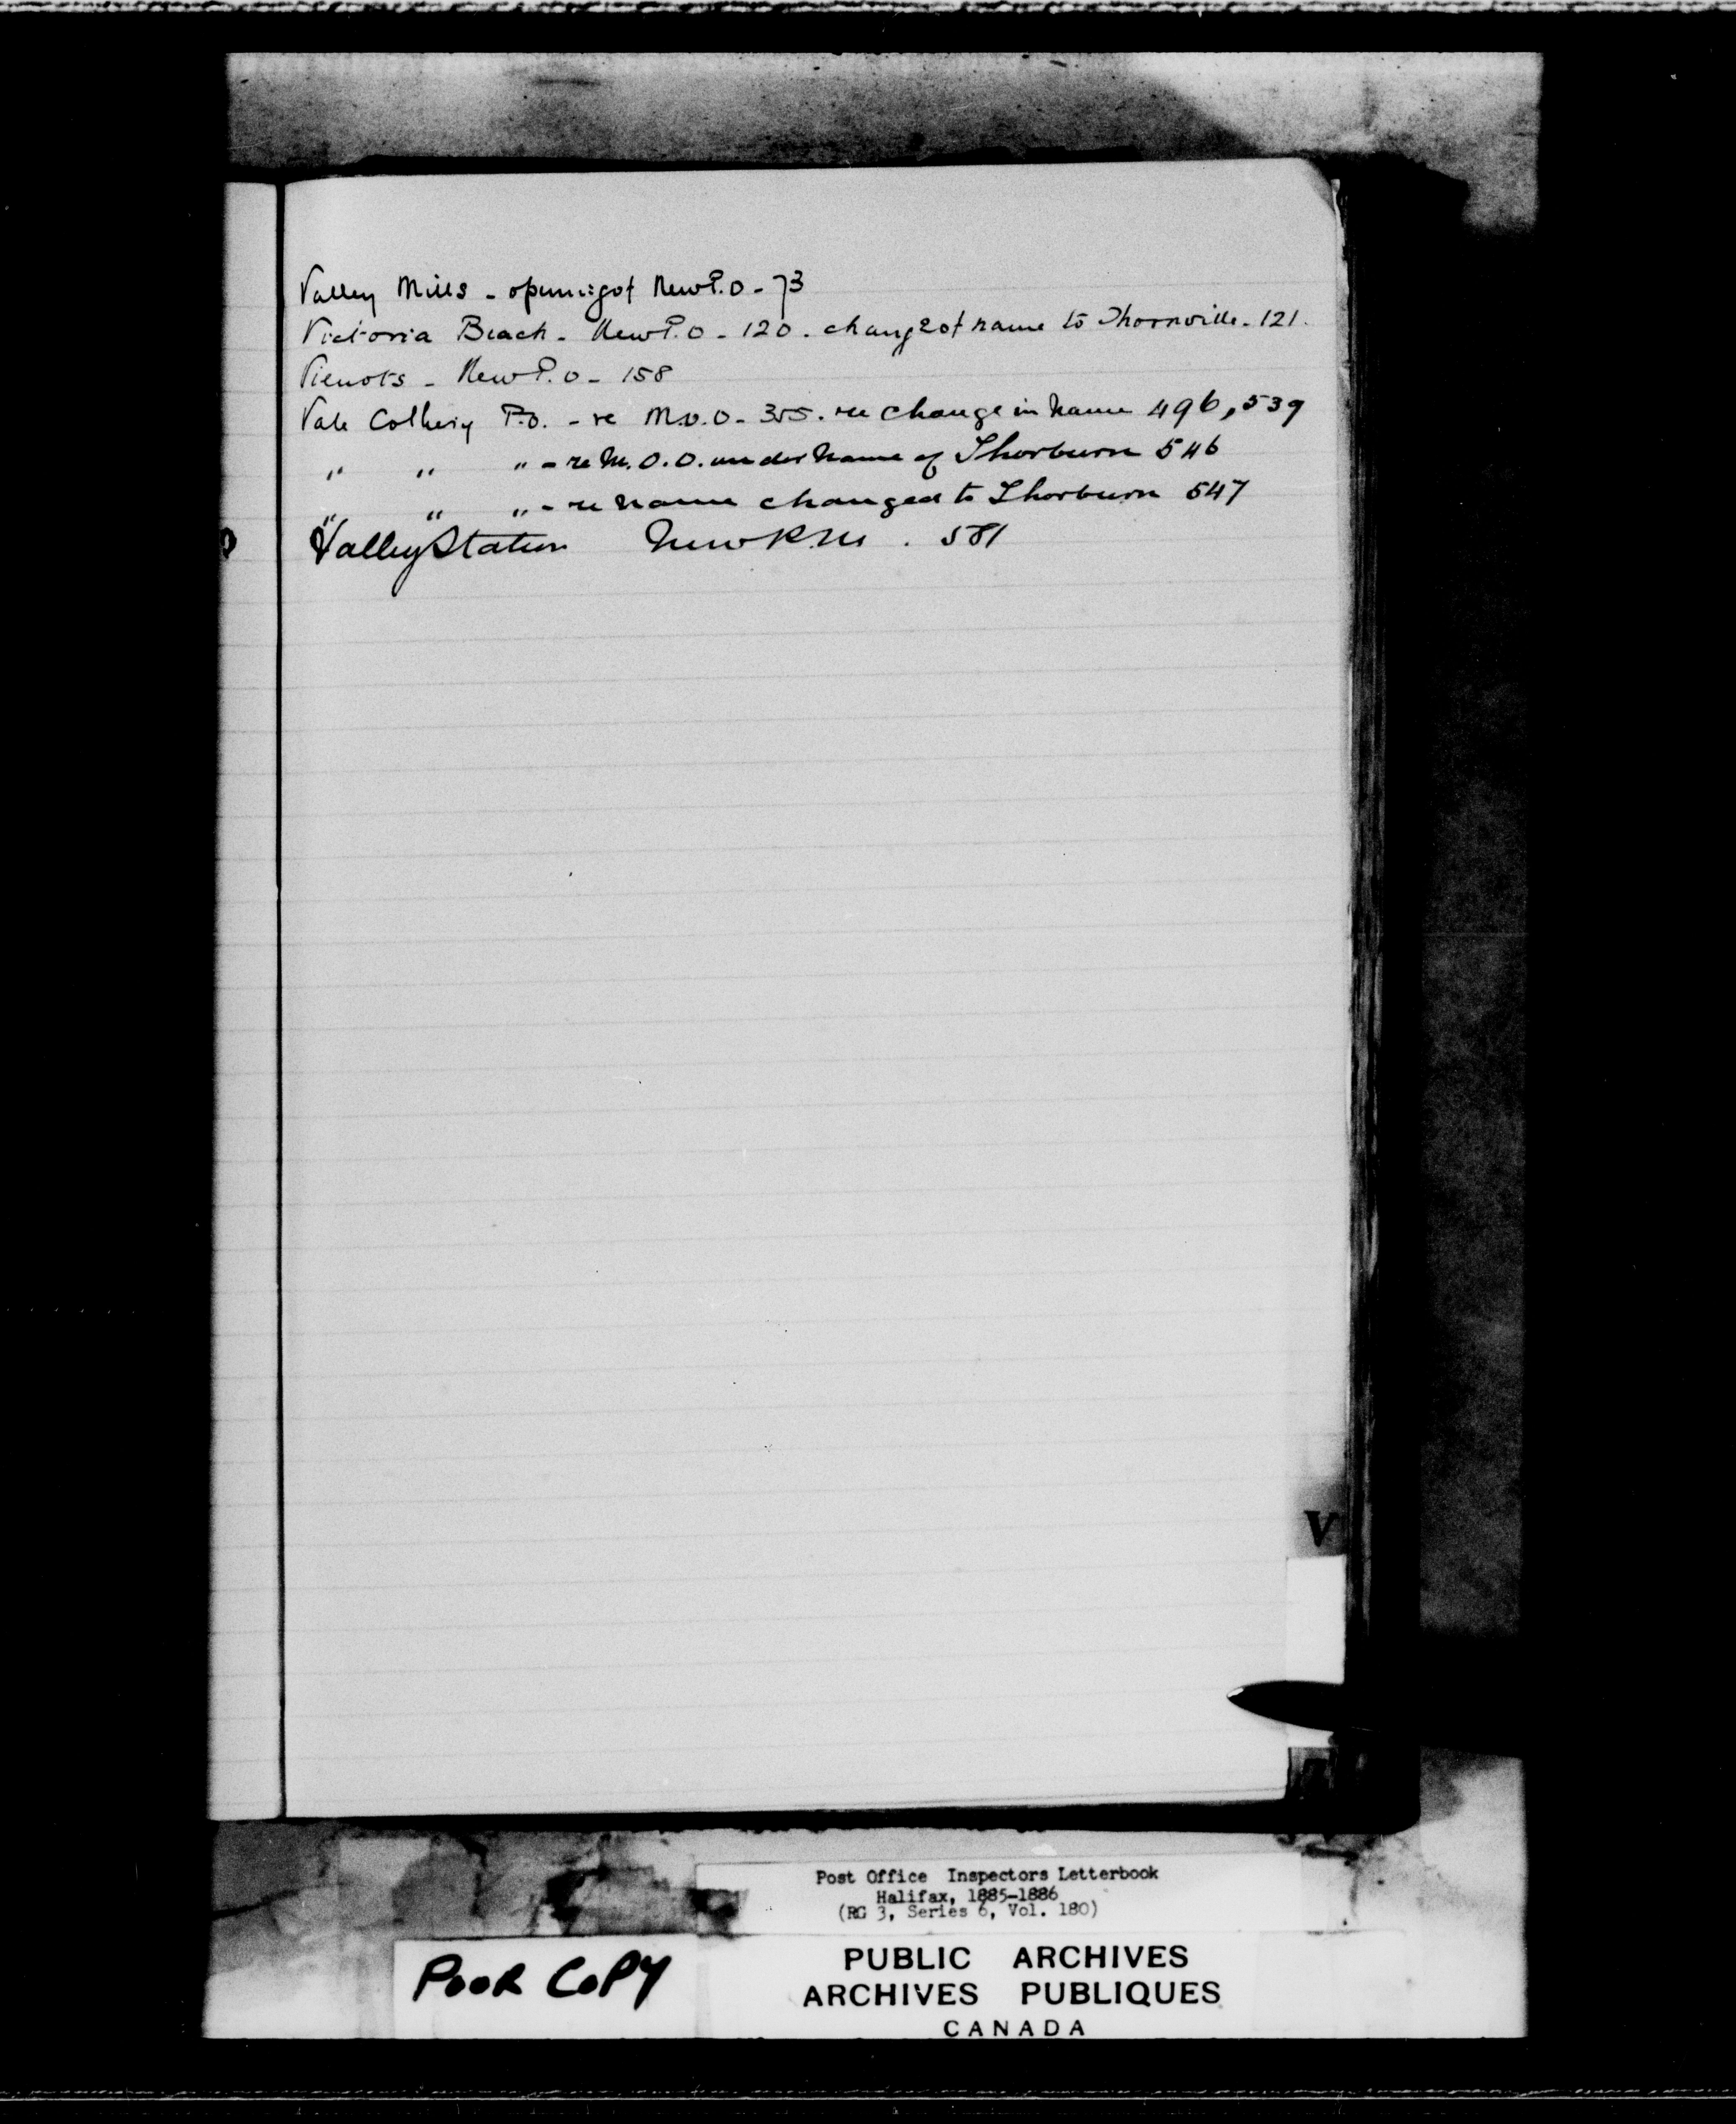 Valley Mills - opening of New P.O - 73
Victoria Beach - New P.O - 120 . change of name to Thornville - 121.
Vienots - New P.O - 158
Vale Colliery P.O. - re M.O.O - 355. re change in name 496, 539
" " " - re M.O.O. under name of Thorburn 546
" " " - re name changed to Thorburn 547
Valley Station New P.M . 581
V
Post Office Inspectors Letterbook
Halifax, 1885-1886
(RG 3, Series 6, Vol. 180)
POOR COPY
PUBLIC ARCHIVES
ARCHIVES PUBLIQUES
CANADA